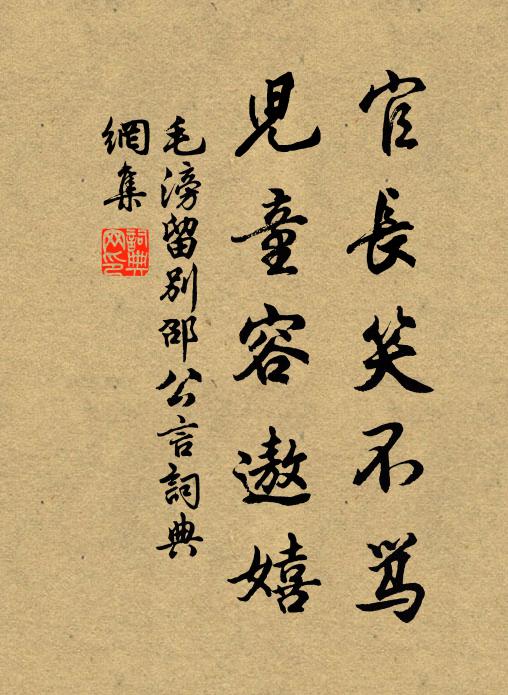 官長笑不骂
児童容遨嬉
毛滂留别邵公言詞典
網集
詞典
网印